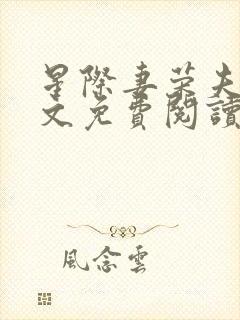 星際妻榮夫
文免費閱讀
風念雲